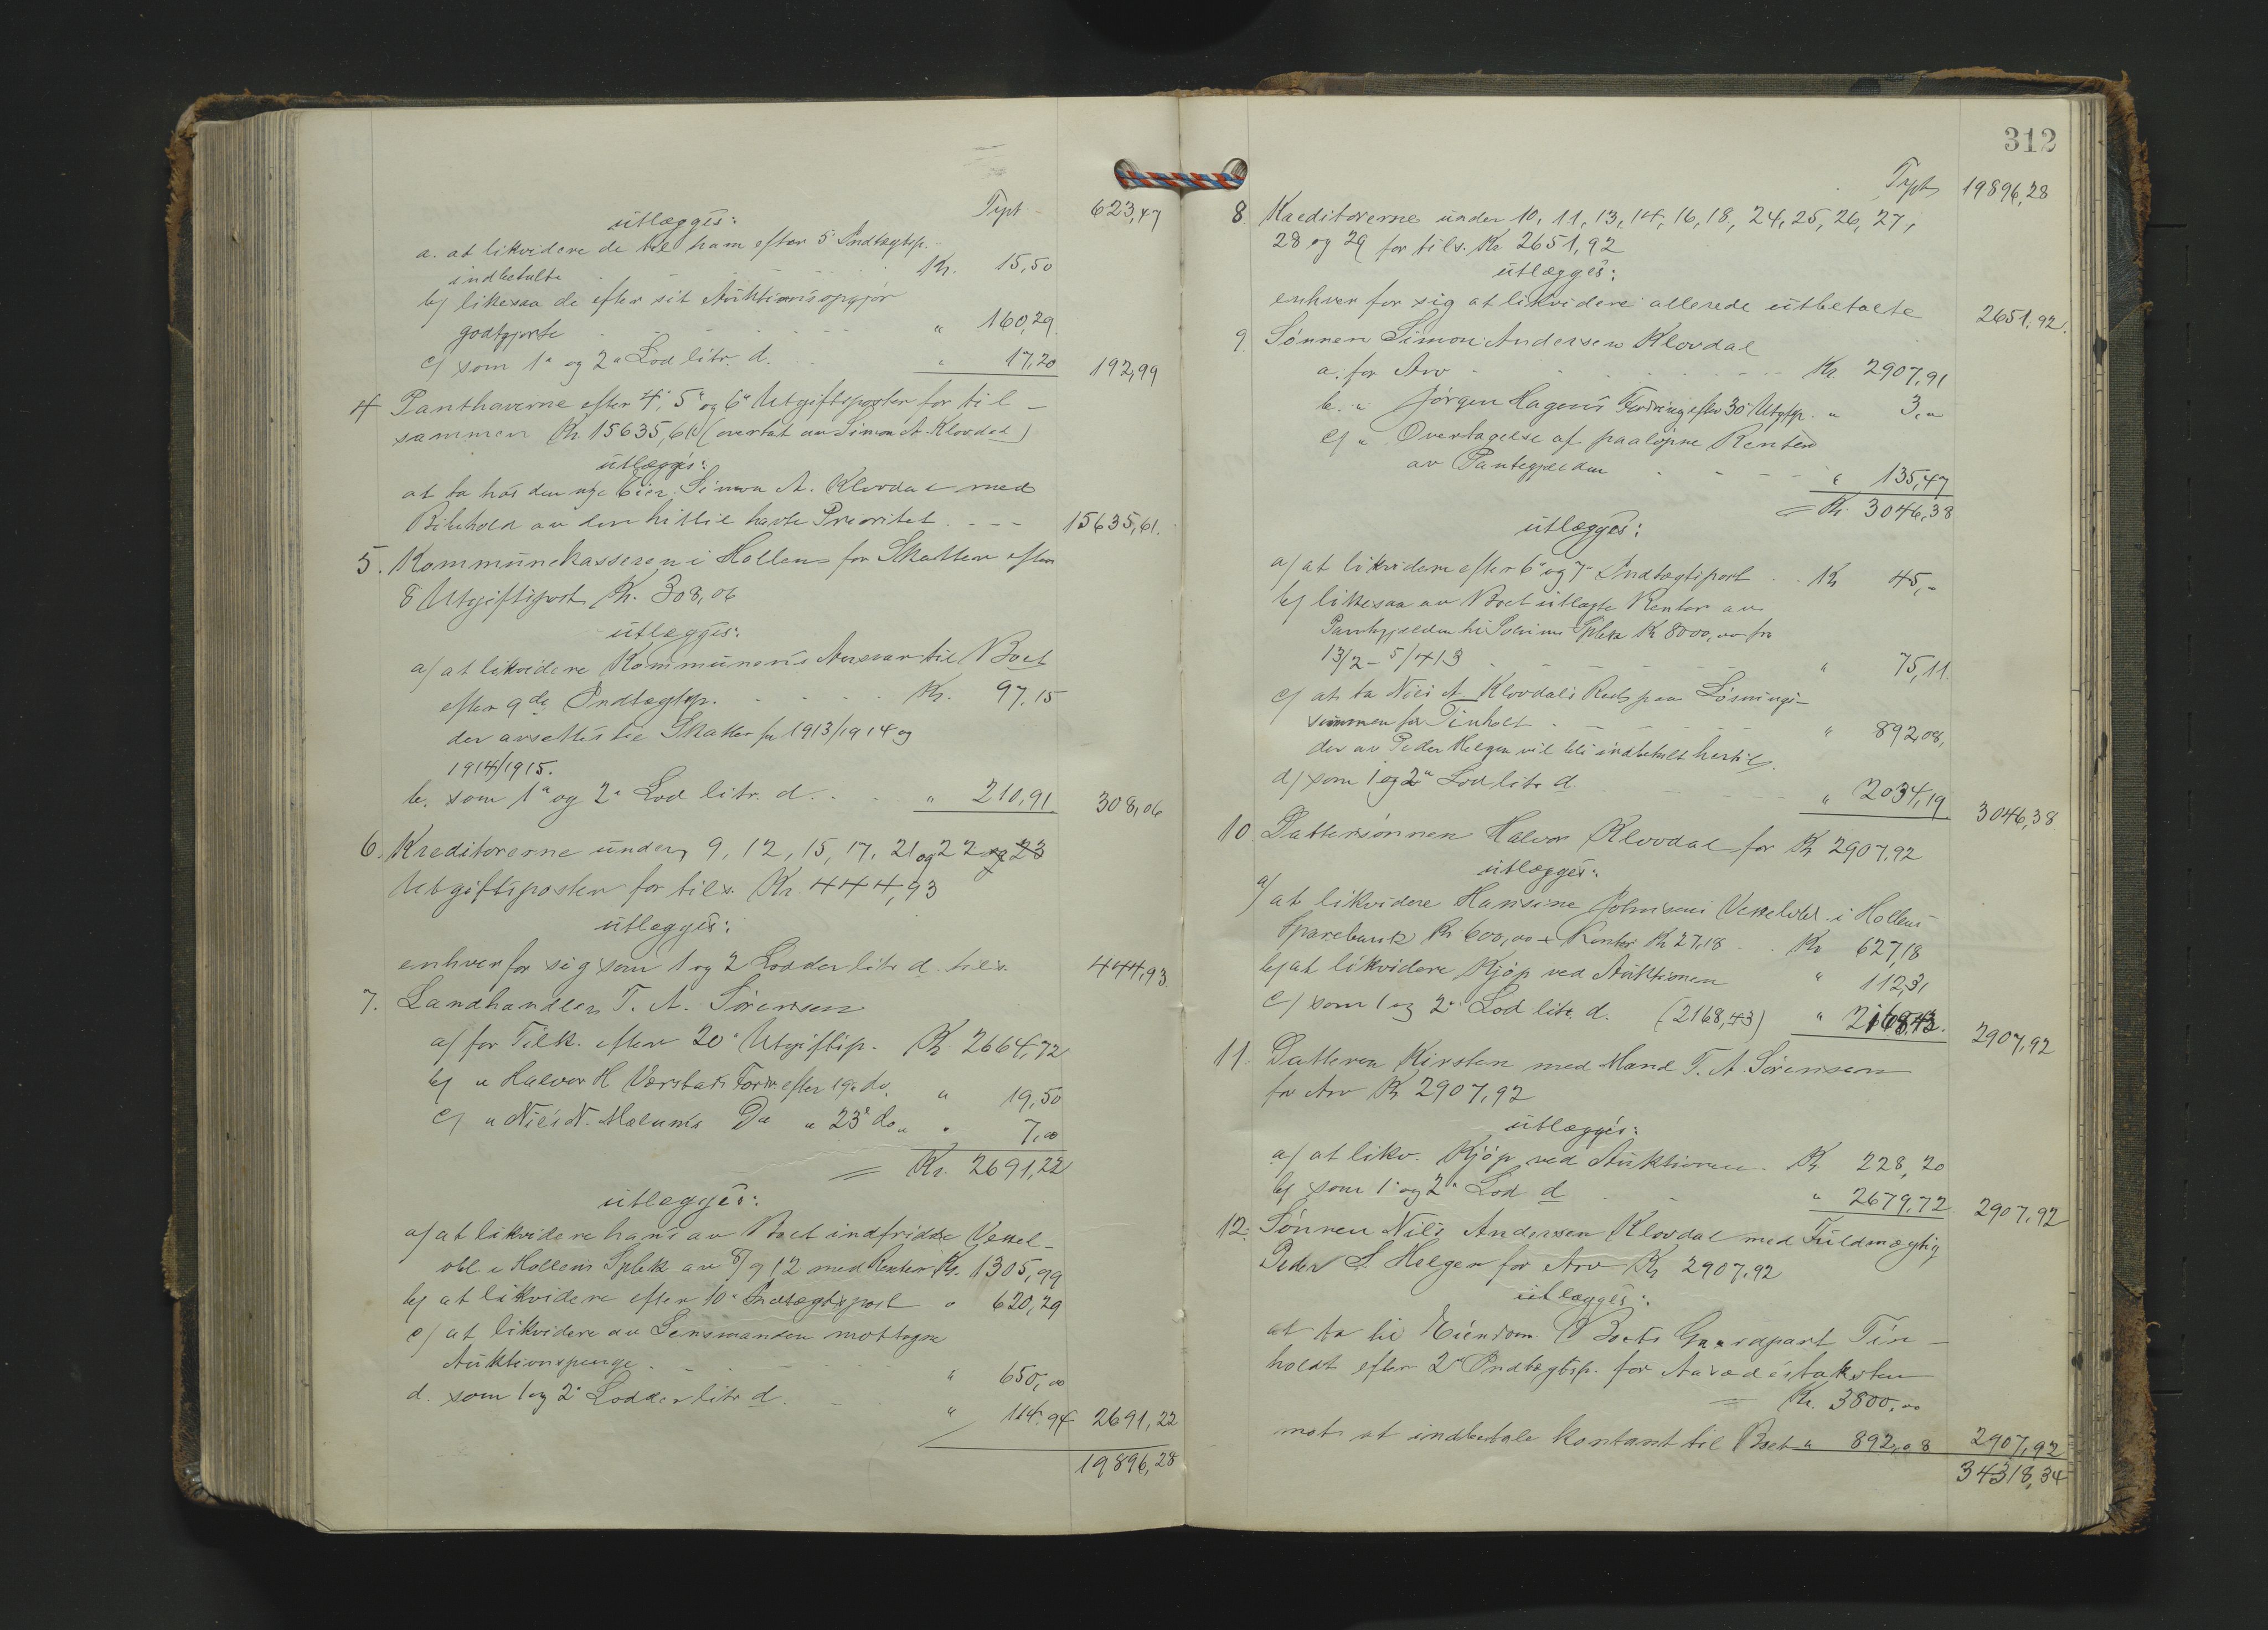 Trpt. 623,47
utlægges:
a. at likvidere de til ham efter 5' Indtægtsp.
indbetalte Kr. 15,50
b) likesaa de efter sit Auktionsopgjør
godtgjorte " 160,29
c) som 1ª og 2ª Lod litr. d. " 17,20 192,99
4 Panthaverne efter 4', 5" og 6" Utgiftsposter for til-
sammen Kr 15635,61 (overtat av Simon A. Klovdal)
utlægges:
at ta hos den nye Eier, Simon A. Klovdal med
Bibehold av den hittil havte Prioritet 15635,61.
5. Kommunekasseren i Hollen for Skatter efter
8 Utgiftspost Kr. 308,06
utlægges:
a) at likvidere Kommunens Ansvar til Boet
efter 9de Indtægtsp. Kr. 97,15
der avsettes til Skatter for 1913/1914 og
1914/1915.
b. som 1ª og 2ª Lod litr. d. " 210,91 308,06
6. Kreditorerne under 9, 12, 15, 17, 21 og 22 og 23
Utgiftsposter for tils. Kr. 444,93
utlægges:
enhver for sig som 1 og 2 Lodder litr d. tils. 444,93
7. Landhandler T. A. Sörensen
a) for Tilk. efter 20' Utgiftsp. Kr 2664,72
b) " Halvor H. Værstads Fordr. efter 19. do. " 19,50
c) " Nils N. Mælums Do " 23' do " " 7,00
= Kr. 2691,22
utlægges:
a) at likvidere hans av Boet indfridde Vexel-
obl. i Hollens Spbk av 8/9 12 med Renter Kr. 1305,99
b) at likvidere efter 10' Indtægtspost " 620,29
c) at likvidere av Lensmanden mottagne
Auktionspenge " 650,00
d. som 1 og 2' Lodder litr d. " 114,94 2691,22
19896,28
312
Trpt. 19896,28
8. Kreditorerne under 10, 11, 13, 14, 16, 18, 24, 25, 26, 27,
28 og 29 for tils. Kr 2651,92
utlægges:
enhver for sig at likvidere allerede utbetalte 2651,92.
9. Sönnen Simon Andersen Klovdal
a. for Arv Kr. 2907,91
b. " Jörgen Hagens Fordring efter 30' Utgfp. " 3,"
c) " Overtagelse af paalöpne Renter
av Pantegjælden " 135,47
= Kr. 3046,38
utlægges:
a) at likvidere efter 6" og 7" Indtægtspost Kr 45,"
b) likesaa av Boet utlagte Renter av
Pantegjælden til Spbk Kr 8000,00 fra
13/2 - 5/4 13 " 75,11
c) at ta Nils A. Klovdals Rest paa Lösnings-
summen for Tinholt " 892,08,
der av Peder Helgen vil bli indbetalt hertil.
d) som 1 og 2" Lod litr d. " 2034,19 3046,38
10. Dattersönnen Halvor Klovdal for Kr 2907,92
utlægges:
a) at likvidere Hansine Johnsens Vexelobl. i Hollens
Sparebank Kr 600,00 + Renter Kr 27,18 Kr 627,18
b) at likvidere Kjöp ved Auktionen " 112,31
c) som 1 og 2" Lod litr. d. (2168,43) " 2168,43. 2907,92
11. Datteren Kirsten med Mand T. A. Sörensen
for Arv Kr 2907,92
utlægges:
a) at likv. Kjöp ved Auktionen. Kr 228,20
b) som 1' og 2" Lod d " 2679,72 2907,92
12. Sönnen Nils Andersen Klovdal med Fuldmægtig
Peder S. Helgen for Arv Kr 2907,92
utlægges:
at ta til Eiendom Boets Gaardpart Tin-
holdt efter 2" Indtægtsp. for Aasædestaksten
= Kr. 3800,00
mot at indbetale kontant til Boet " 892,08 2907,92
34318,34